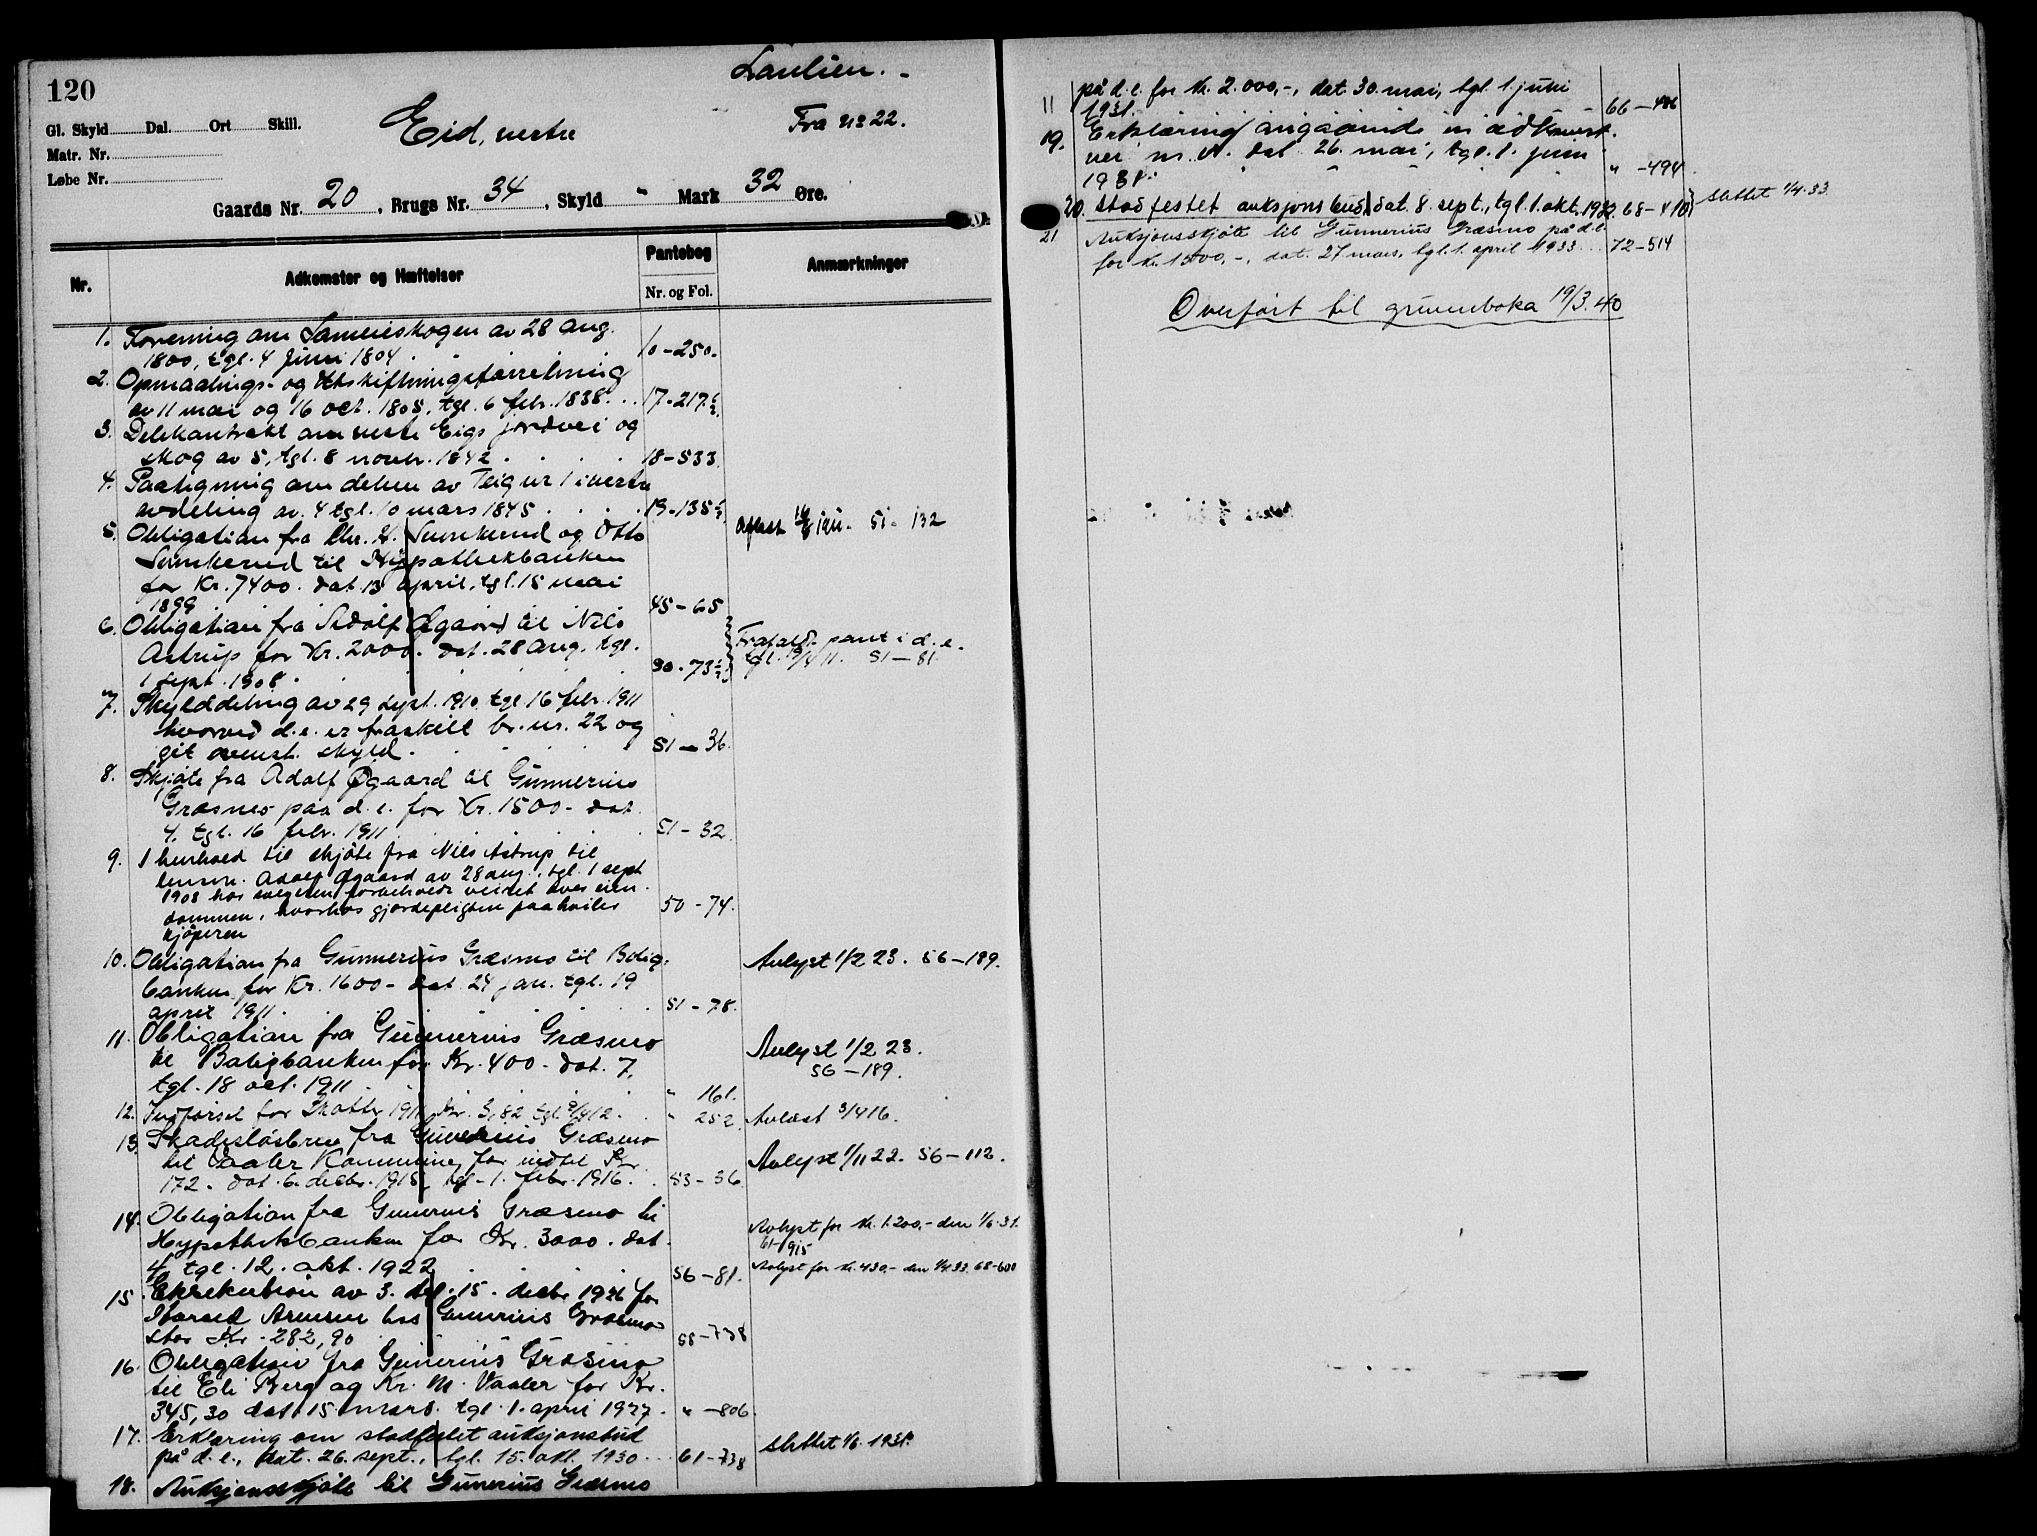 120
Laulien. -
Gl. Skyld Dal. Ort Skill.
Matr. Nr.
Løbe Nr.
Eid, vestre
Fra nr 22.
Gaards Nr. 20, Brugs Nr. 34, Skyld " Mark 32 Øre.
Nr.
Adkomster og Hæftelser
Pantebog
Nr. og Fol.
Anmærkninger
1. Forening om Sameieskogen av 28 aug.
1800, tgl. 4 juni 1804 10-250.
2. Opmaalings- og Utskiftningsforretning
av 11 mai og 16 oct. 1805, tgl. 6 febr. 1838... 17-217½
3. Delekontrakt om vestre Eigs jordvei og
skog av 5, tgl. 8 novbr. 1842 18-533.
4. Paategning om delen av Teig nr 1 i vestre
avdeling av. 4 tgl. 10 mars 1845 19-135½
5. Obligation fra Chr. H. Sunkerud og Otto Avløst jan. 51-132
Sunkerud til Hypothekbanken
for Kr. 7400. dat. 13 april, tgl. 15 mai
1899 45-65
6. Obligation fra Adolf Øgaard til Nils
Astrup for Kr. 2000. dat. 28 aug. tgl.
1 sept. 1908. 50-73½ Frafaldt pant i d. e.
tgl. 19/4 11. 51-81.
7. Skylddeling av 29 sept. 1910. tgl 16 febr. 1911
hvorved d. e. er fraskilt br. nr. 22 og
git ovenst. skyld. 51-36.
8. Skjøte fra Adolf Øgaard til Gunnerius
Græsmo paa d. e. for Kr. 1500- dat.
4. tgl. 16 febr. 1911 51-32.
9. I henhold til skjøte fra Nils Astrup til
Adolf Øgaard av 28 aug., tgl. 1 sept
1908 har sælgeren forbeholdt veiret over eien-
dommen, hvorhos gjærdepligten paahviler
kjøperen 50-74.
10. Obligation fra Gunnerius Græsmo til Bolig-
banken for Kr. 1600- dat. 24 jan. tgl. 19
april 1911. 51-78. Avlyst 1/2 23. 56-189.
11. Obligation fra Gunnerius Græsmo
til Boligbanken for Kr. 400- dat. 7.
tgl. 18 oct. 1911 " 161. Avlyst 1/2 23.
56-189.
12. Indførsel for Skatter 1911 Kr. 3,82 tgl 9/4 12. " 252. Avlæst 3/4 16.
13. Skadesløsbrev fra Gunnerius Græsmo
til Vaaler Kommune, for indtil Kr.
172- dat. 6. decbr. 1915, tgl. 1. febr. 1916. 53-36 Avlyst 1/11 22. 56-112.
14. Obligation fra Gunerius Græsmo til
Hypothekbanken for Kr. 3000. dat.
4, tgl. 12. okt. 1922 56-81. Avlyst for kr. 1200,- den 1/6.31.
61-915
Avlyst for kr. 430,- den 1/4.33. 68-600
15. Eksekution av 3. tgl. 15. decbr 1926 for
hos Gunerius Græsmo
stor Kr. 282,90 58-738
16. Obligation fra Gunerius Græsmo
til Eli Berg og Kr. M. Vaaler for Kr.
345,30 dat. 15 mars. tgl. 1. april 1927. " -806.
17. Erklæring om stadfestet auksjonsbud
på d. e., dat. 26. sept., tgl. 15. okt. 1930... 61-738 slettet 1/6.1931.
18. Auksjonsskjøte til Gunerius Græsmo
11 på d. e. for kr. 2.000,-, dat. 30. mai, tgl. 1. juni
1931. 66-486
19. Erklæring angående en adkomst-
vei m. v. dat. 26. mai, tgl. 1. juni
1931. " -494.
20. Stadfestet auksjonsbud dat. 8. sept., tgl. 1. okt. 1932. 68-410 slettet 1/4.33.
21 Auksjonsskjøte til Gunnerius Græsmo på d. e.
for kr. 1500,-, dat. 27 mars, tgl. 1. april 1933... 72-514
Overført til grunnboka 19/3.40